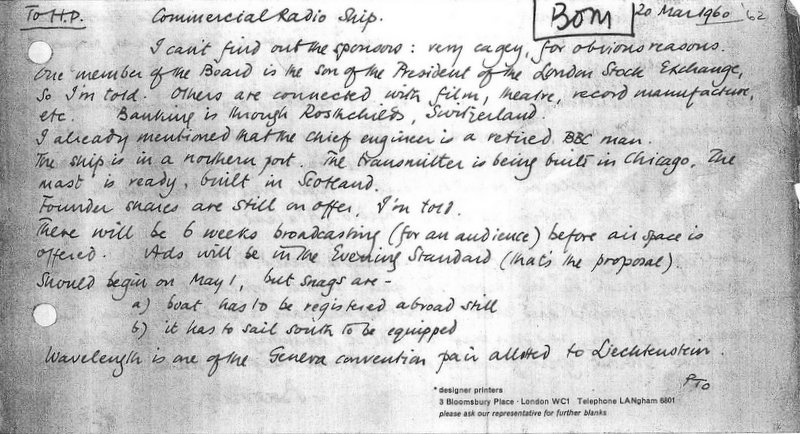 To H.P. Commercial Radio Ship. BOM 20 Mar 1960 '62
I can't find out the sponsors : very cagey, for obvious reasons.
One member of the Board is the son of the President of the London Stock Exchange,
so I'm told. Others are connected with film, theatre, record manufacture,
etc. Banking is through Roskchields, Switzerland.
I already mentioned that the chief engineer is a retired BBC man.
The ship is in a northern port. The transmitter is being built in Chicago, The
mast is ready, built in Scotland.
Founder shares are still on offer, I'm told.
There will be 6 weeks broadcasting (for an audience) before air space is
offered. Ads will be in the Evening Standard (that's the proposal).
Should begin on May 1, but snags are -
a) boat has to be registered abroad still
b) it has to sail south to be equipped
Wavelength is one of the Geneva convention pair allotted to Liechtenstein.
PTO
* designer printers
3 Bloomsbury Place · London WC1 Telephone LANgham 6801
please ask our representative for further blanks